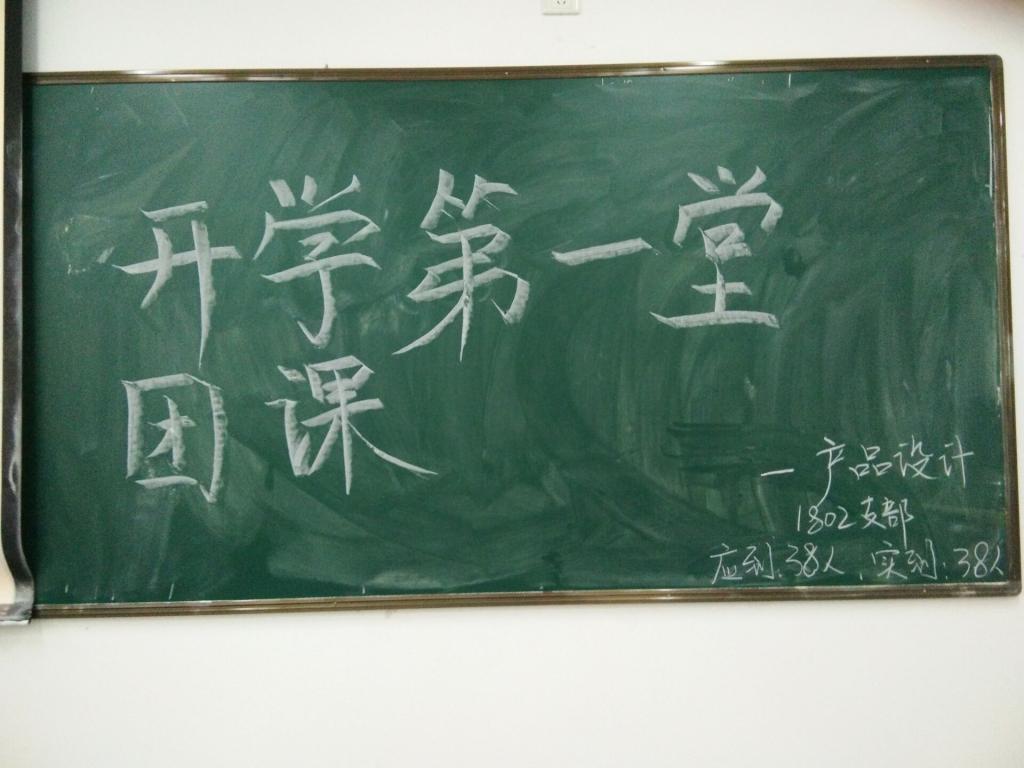 开学第一堂
团课
一产品设计
1802支部
应到:38人,实到:38人